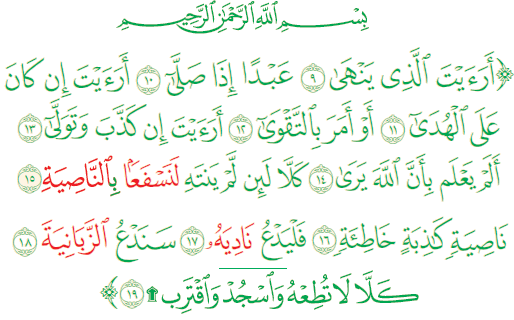 بِسْمِ ٱللَّهِ ٱلرَّحْمَٰنِ ٱلرَّحِيمِ
﴿أَرَءَيْتَ ٱلَّذِى يَنْهَىٰ ۝٩ عَبْدًا إِذَا صَلَّىٰٓ ۝١٠ أَرَءَيْتَ إِن كَانَ
عَلَى ٱلْهُدَىٰٓ ۝١١ أَوْ أَمَرَ بِٱلتَّقْوَىٰٓ ۝١٢ أَرَءَيْتَ إِن كَذَّبَ وَتَوَلَّىٰٓ ۝١٣
أَلَمْ يَعْلَم بِأَنَّ ٱللَّهَ يَرَىٰ ۝١٤ كَلَّا لَئِن لَّمْ يَنتَهِ لَنَسْفَعًۢا بِٱلنَّاصِيَةِ ۝١٥
نَاصِيَةٍ كَٰذِبَةٍ خَاطِئَةٍ ۝١٦ فَلْيَدْعُ نَادِيَهُۥ ۝١٧ سَنَدْعُ ٱلزَّبَانِيَةَ ۝١٨
كَلَّا لَا تُطِعْهُ وَٱسْجُدْ وَٱقْتَرِب ۩ ۝١٩﴾